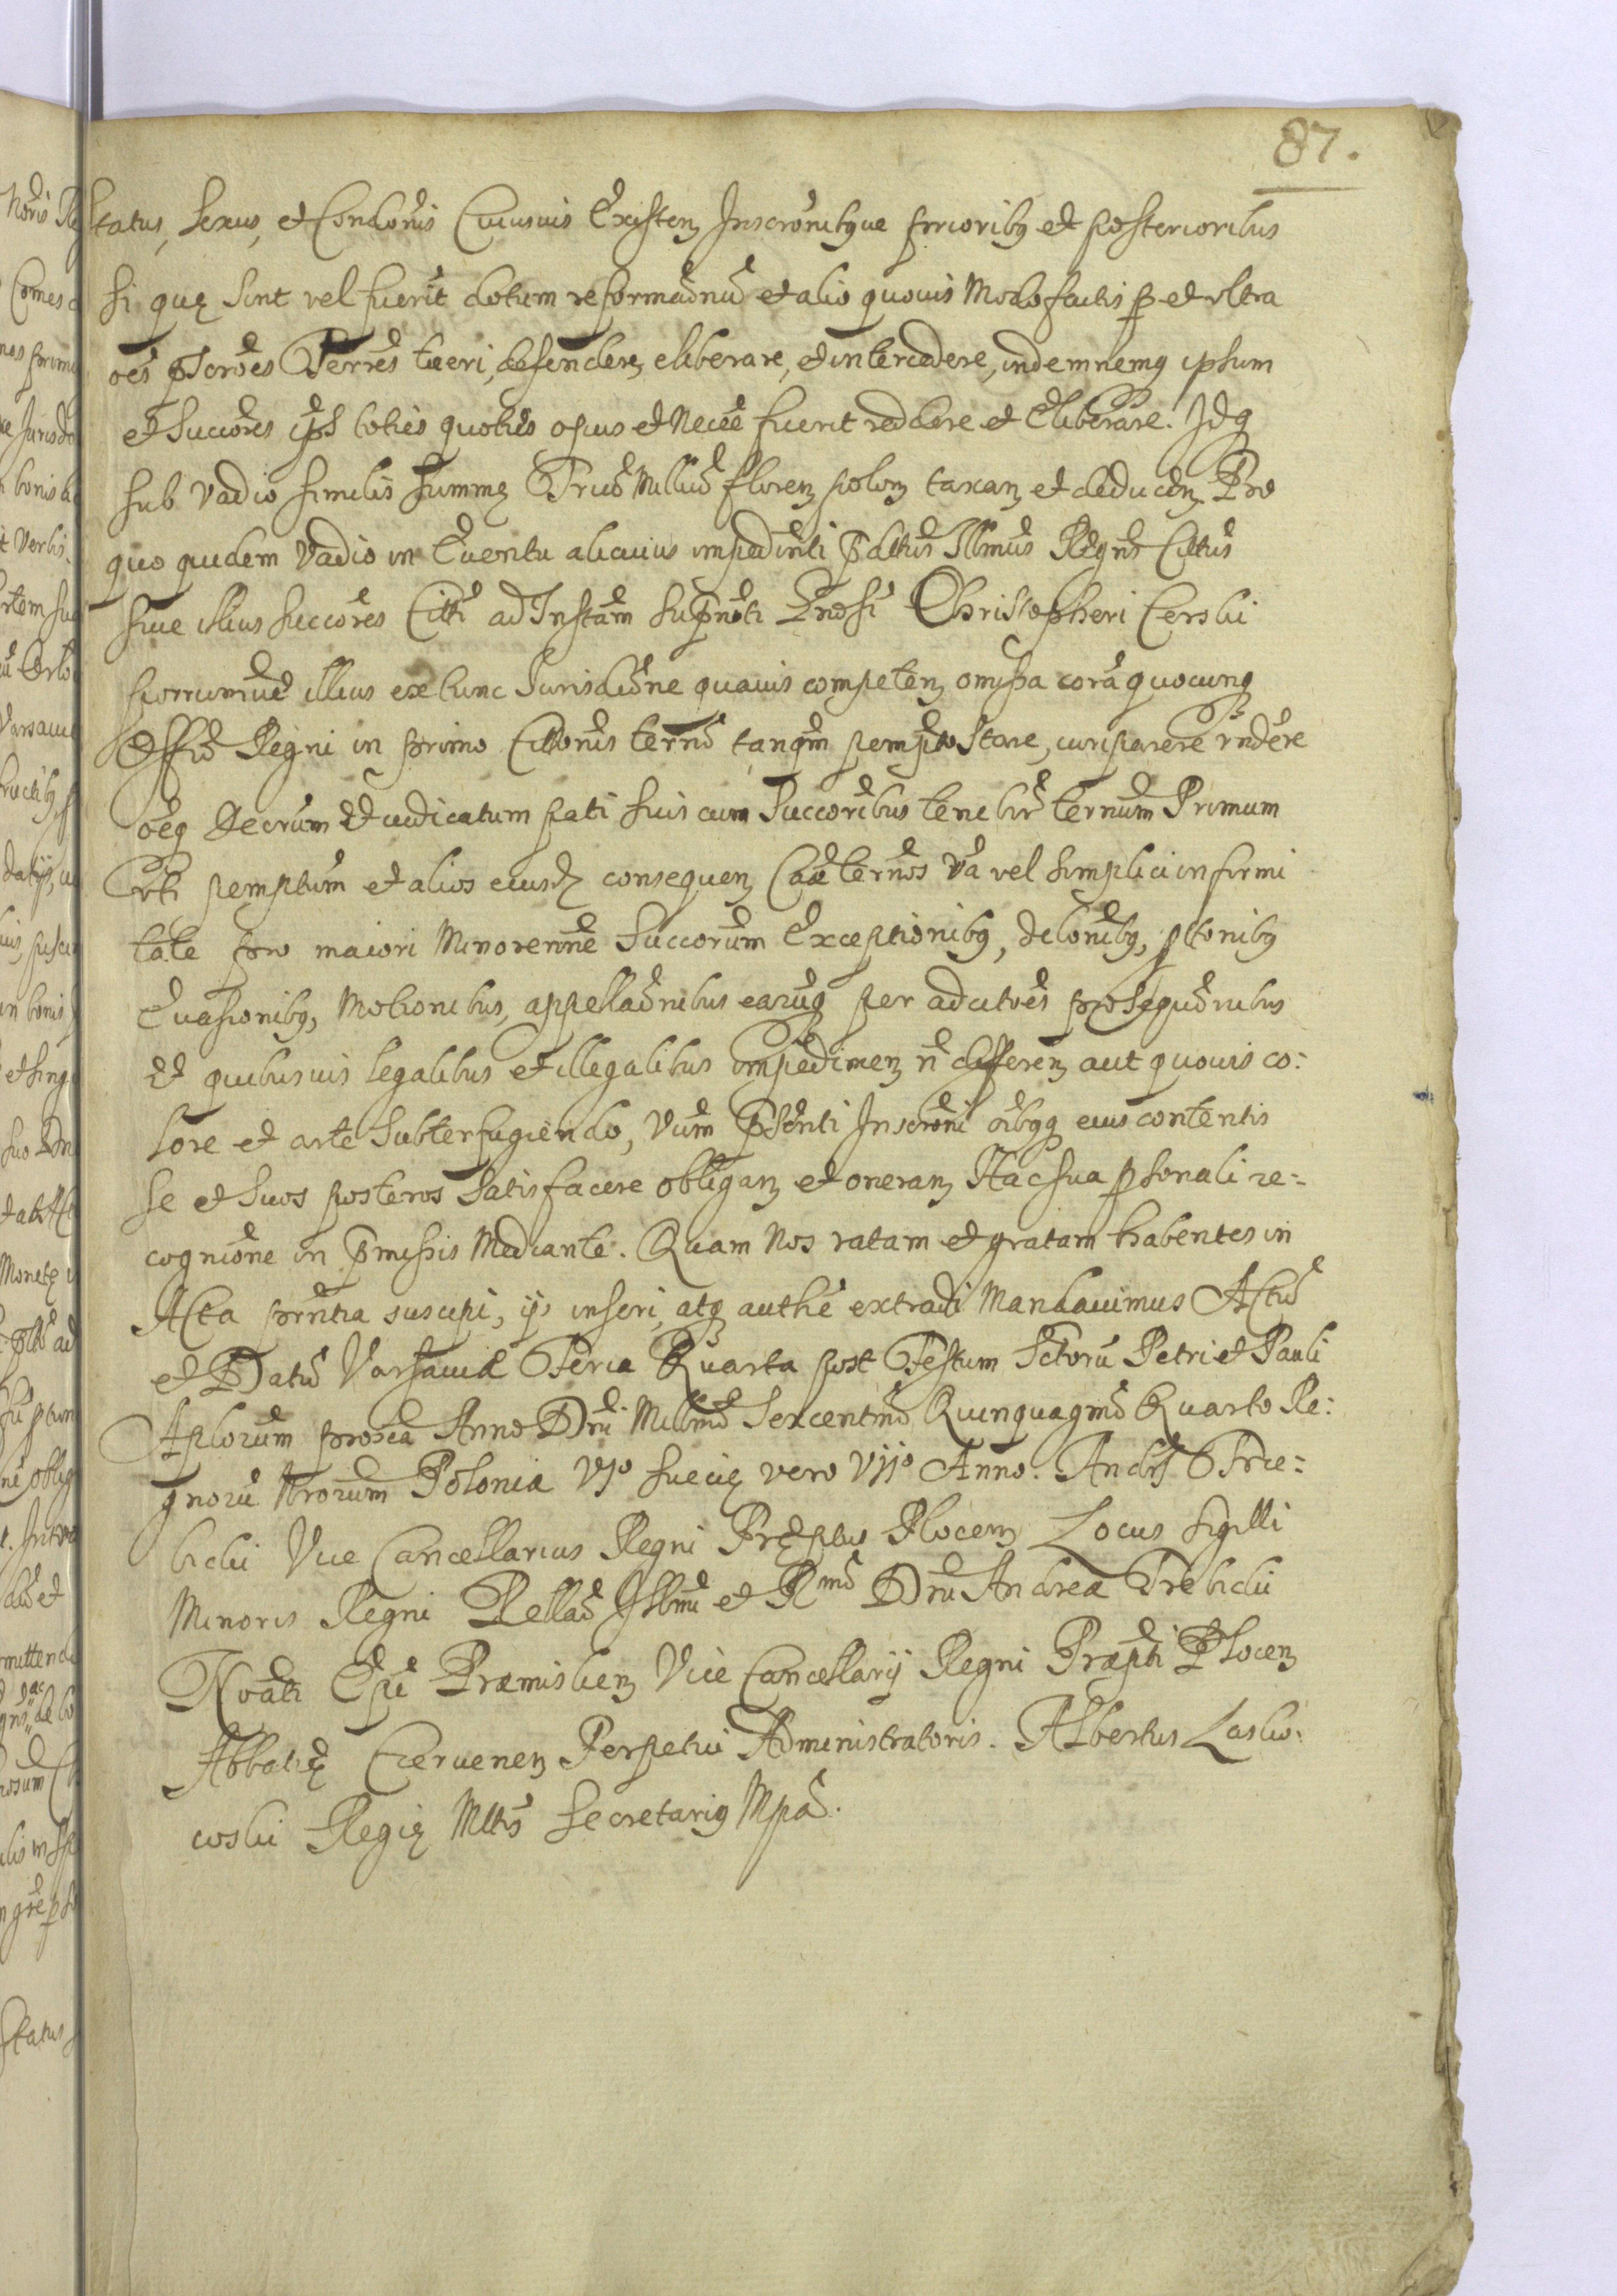 87.
Status, Sexus, et Condonis Cuiusuis Existen Inscronibque prioribq et posterioribus
si quę sint vel fuerit dotum reformaonu et alio quouis Modo factis p et vltra
oes pscroes Terres tueri, defendere, eliberare, et intercedere, indemnemq ipsum
et Succores ips toties quoties opus et Necee fuerit reddere et Eliberare. Idq
sub Vadio similis Summę Triu Milliu floren polon taxan et deducen Pro
quo quidem Vadio in Euentu alicuius impedinti pdttus Illmus Regns Citus
siue illius succores Citti ad Instam supnoti Gnosi Christopheri Cerski
surrumue illius ex tunc Jurisdione quauis competen omissa cora quocunq
Offio Regni in primo Cittonis ternō tanqm pempto Stare, comparere rndere
oeq Decrum et iudicatum pati suis cum Succoribus tenebir ternum Primum
vti pemptum et alios eiusd consequen Cae ternos Va vel simplici infirmi
tate pro maiori Minorenne Succorum Exceptionibq, dilonibq, ptonibq
Euasionibq, Motionibus, appellaonibus earuq per adcitoes prosequonibus
et quibusuis legalibus et illegalibus impedimen n differen aut quouis co:
lore et arte Subterfugiendo, Vum psenti Inscroni oibqq eius contentis
se et suos posteros satisfacere obligan et oneran Hac sua psonali re=
cognione in pmissis Mediante. Quam Nos ratam et gratam habentes in
Acta prntia suscipi, ijs inseri, atq authe extradi Mandauimus Actu
et Datu Varsauiæ Feria Quarta post Festum Sctoru Petri et Pauli
Aplorum proxa Anno Dni Millmo Sexcentmo Quinquagmo Quarto Re:
gnoru Nrorum Poloniæ VIo suecię vero VIIo Anno. Andrs Trze=
bicki Vice Cancellarius Regni Pręptus Plocen Locus sigilli
Minoris Regni Rellao Illmi et Rmi Dni Andreæ Trebicki
Noāti Epi Præmislien Vice Cancellarij Regni Præpti Plocen
Abbatię Czeruenen Perpetui Administratoris. Albertus Lasko:
woski Regię Mttis Secretariq Mpa.